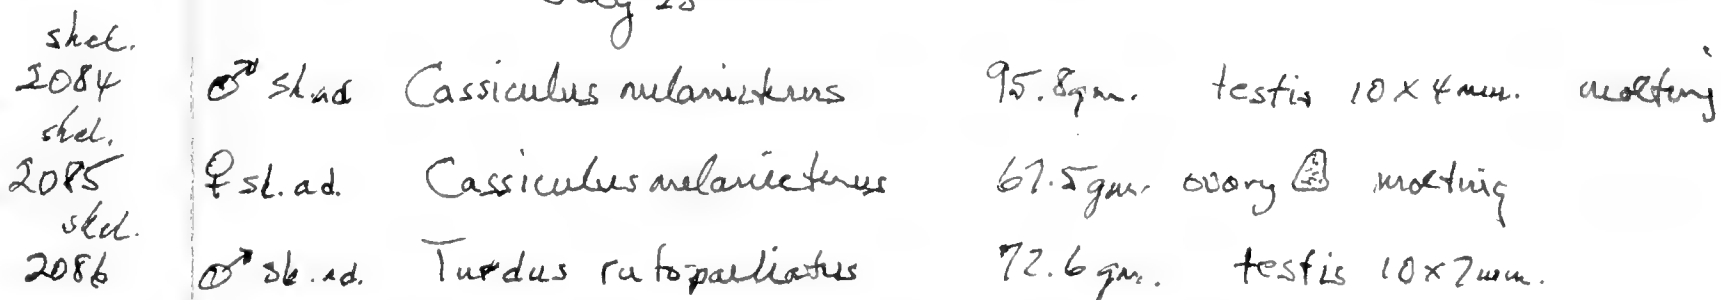 July 25
skel.
2084 ♂ sk.ad Cassiculus melanicterus 95.8gm. testis 10 x 4mm. molting
skel.
2085 ♀ sk.ad. Cassiculus melanicterus 67.5gm. ovary molting
skel.
2086 ♂ sk.ad. Turdus rufopalliatus 72.6gm. testis 10x7mm.